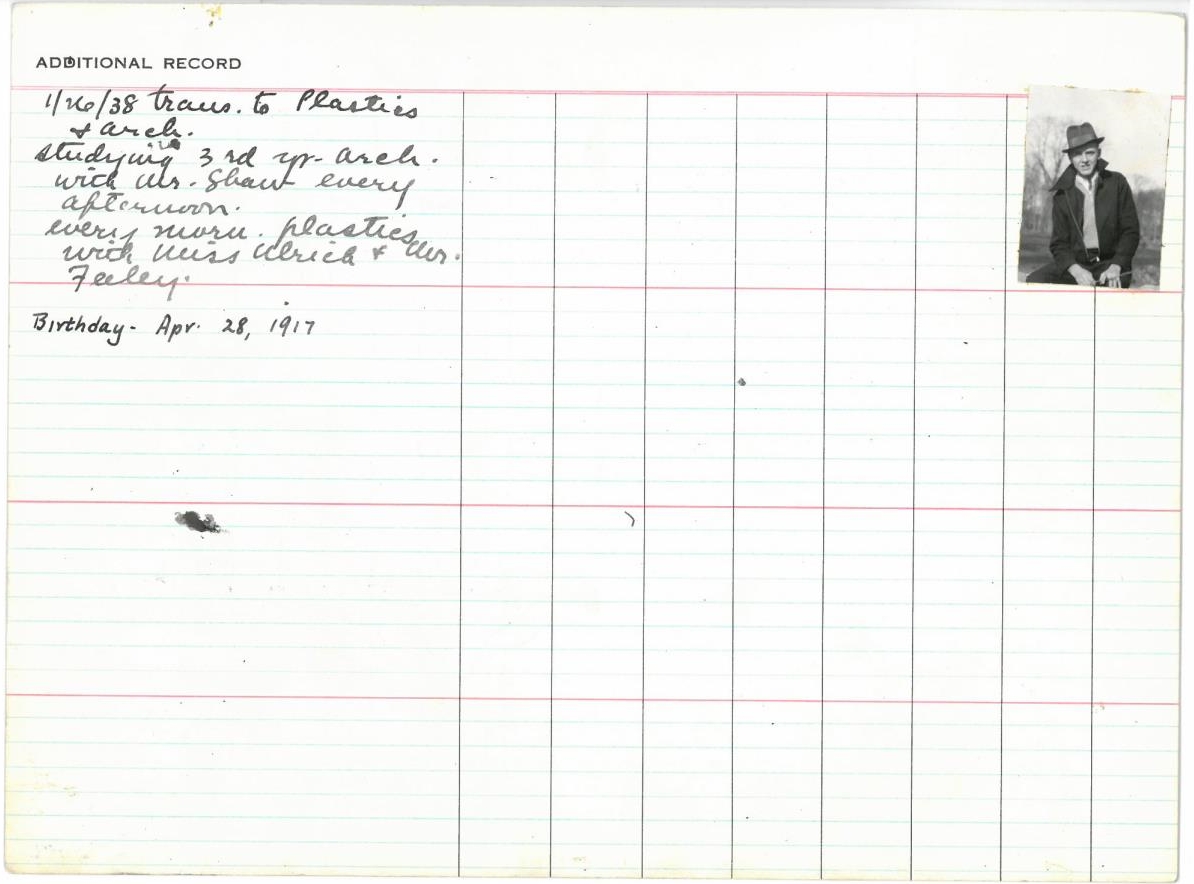 ADDITIONAL RECORD
1/26/38 trans. to Plastics
+ arch.
studying 3rd yr. arch.
with Mr. Shaw every
afternoon.
every morn. plastics
with Miss Ulrich + Mr.
Feeley.
Birthday - Apr. 28, 1917